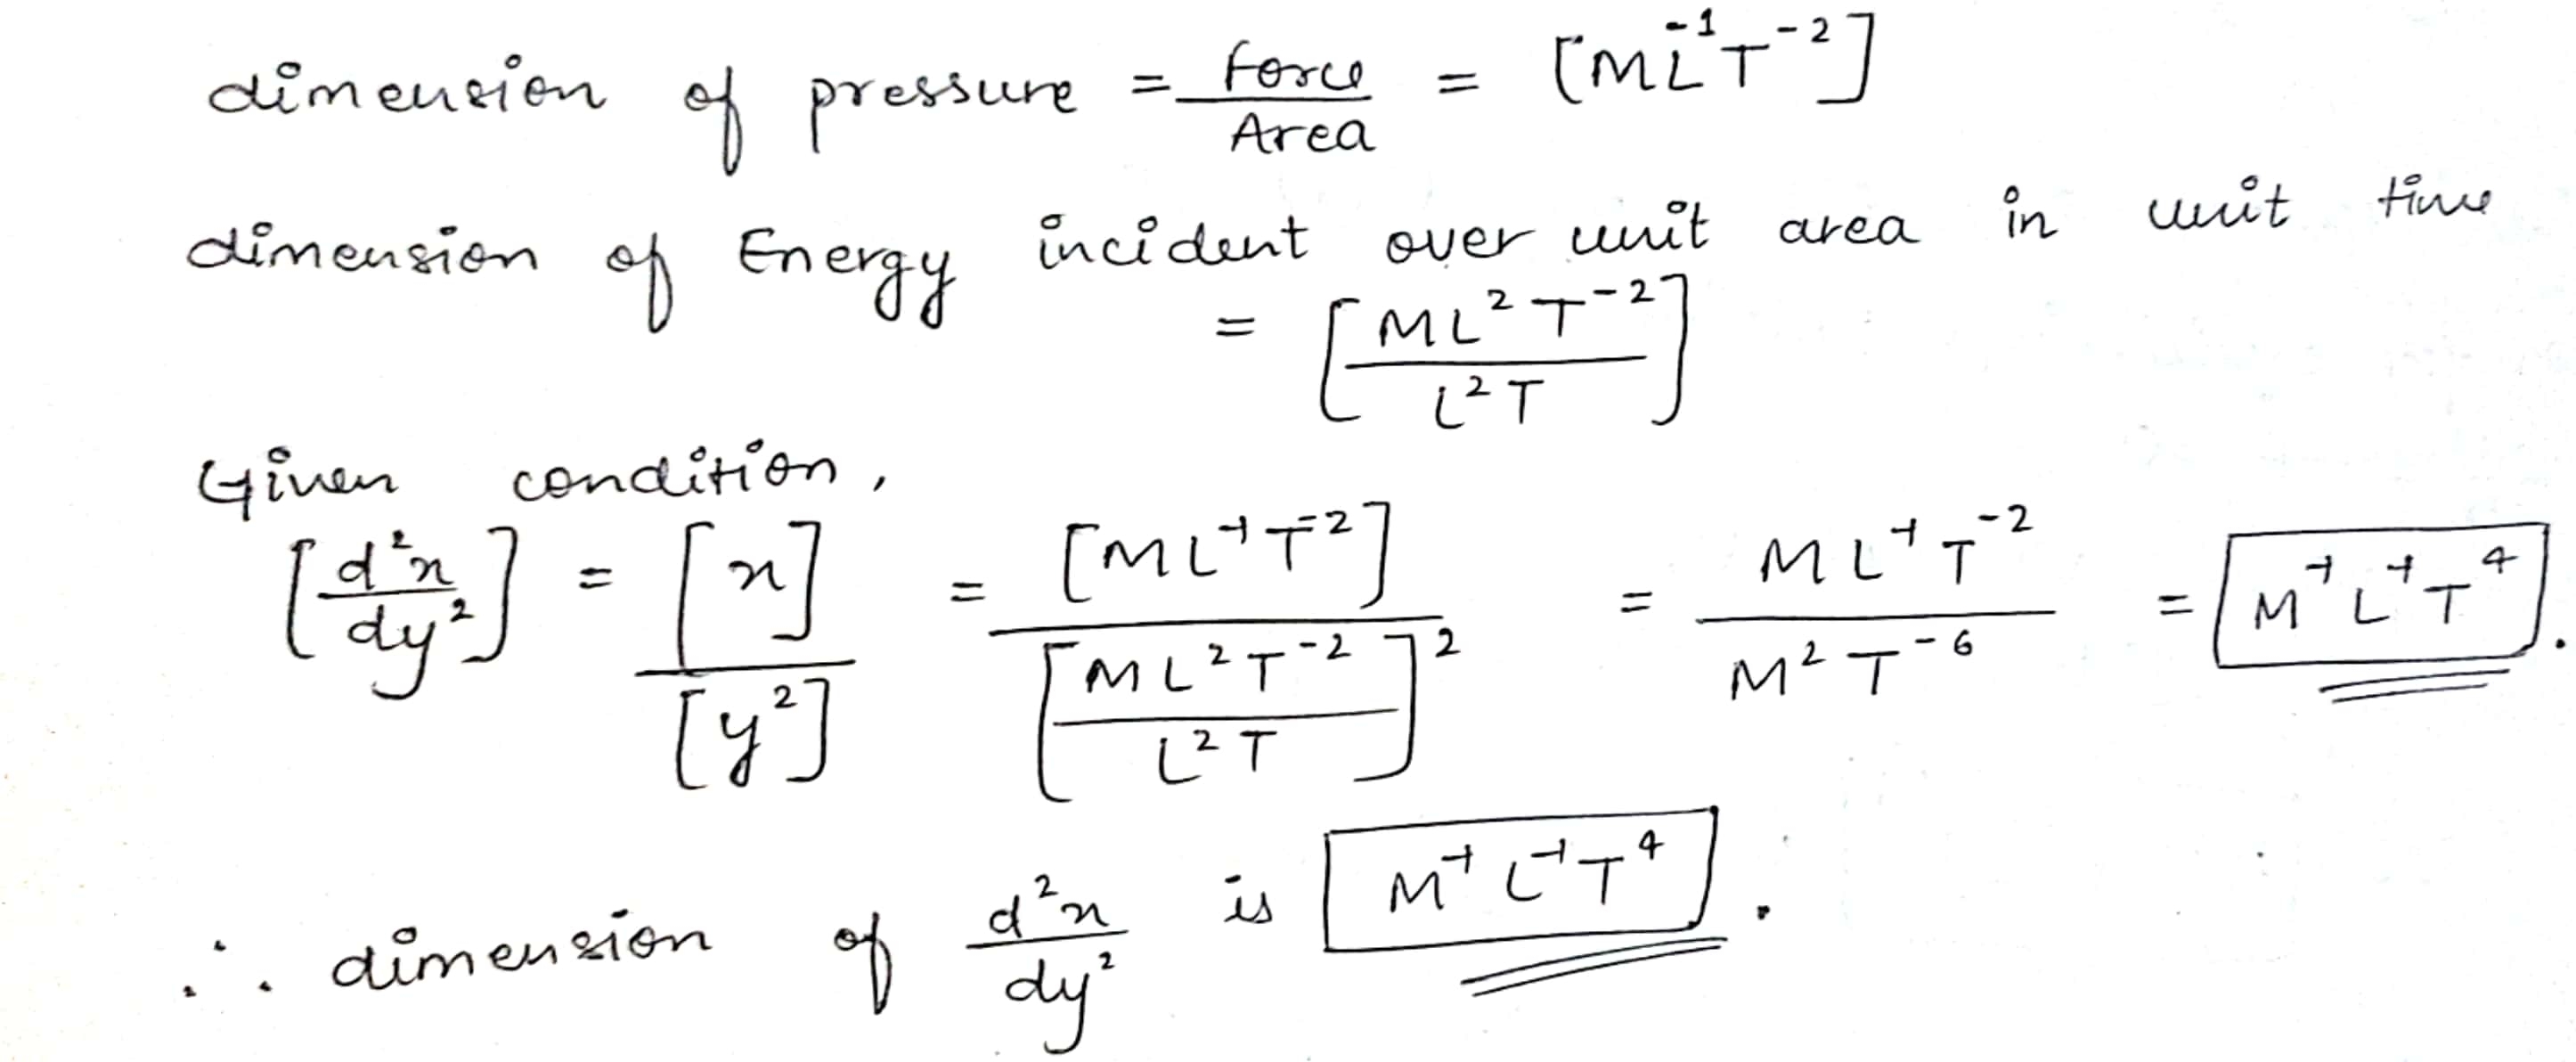 dimension of pressure = Force/Area = [ML⁻¹T⁻²]
dimension of Energy incident over unit area in unit time
= [ML²T⁻²/L²T]
Given condition,
[d²x/dy²] = [x]/[y²] = [ML⁻¹T⁻²]/[ML²T⁻²/L²T]² = ML⁻¹T⁻²/M²T⁻⁶ = M⁻¹L⁻¹T⁴.
∴ dimension of d²x/dy² is M⁻¹L⁻¹T⁴.